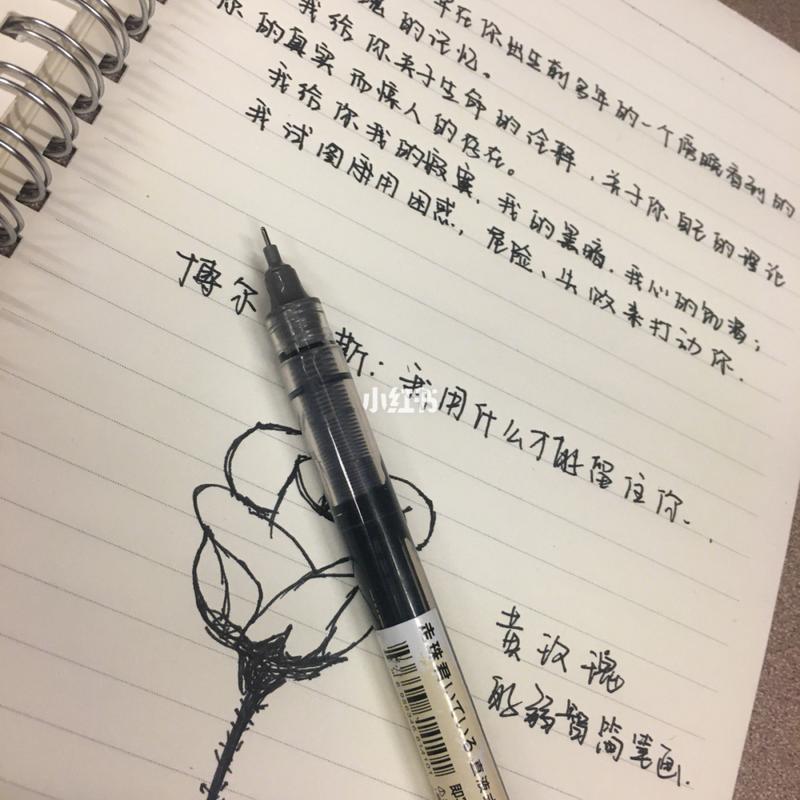 在你出生前多年的一个傍晚看到的
瑰的记忆。
我给你关于生命的诠释,关于你自己的理论
你的真实而惊人的存在。
我给你我的寂寞,我的黑暗,我心的饥渴;
我试图用困惑,危险、失败来打动你.
博尔 斯:我用什么才能留住你..
小红书
黄玫瑰
配弱智简笔画.
走珠君いている 直液
即